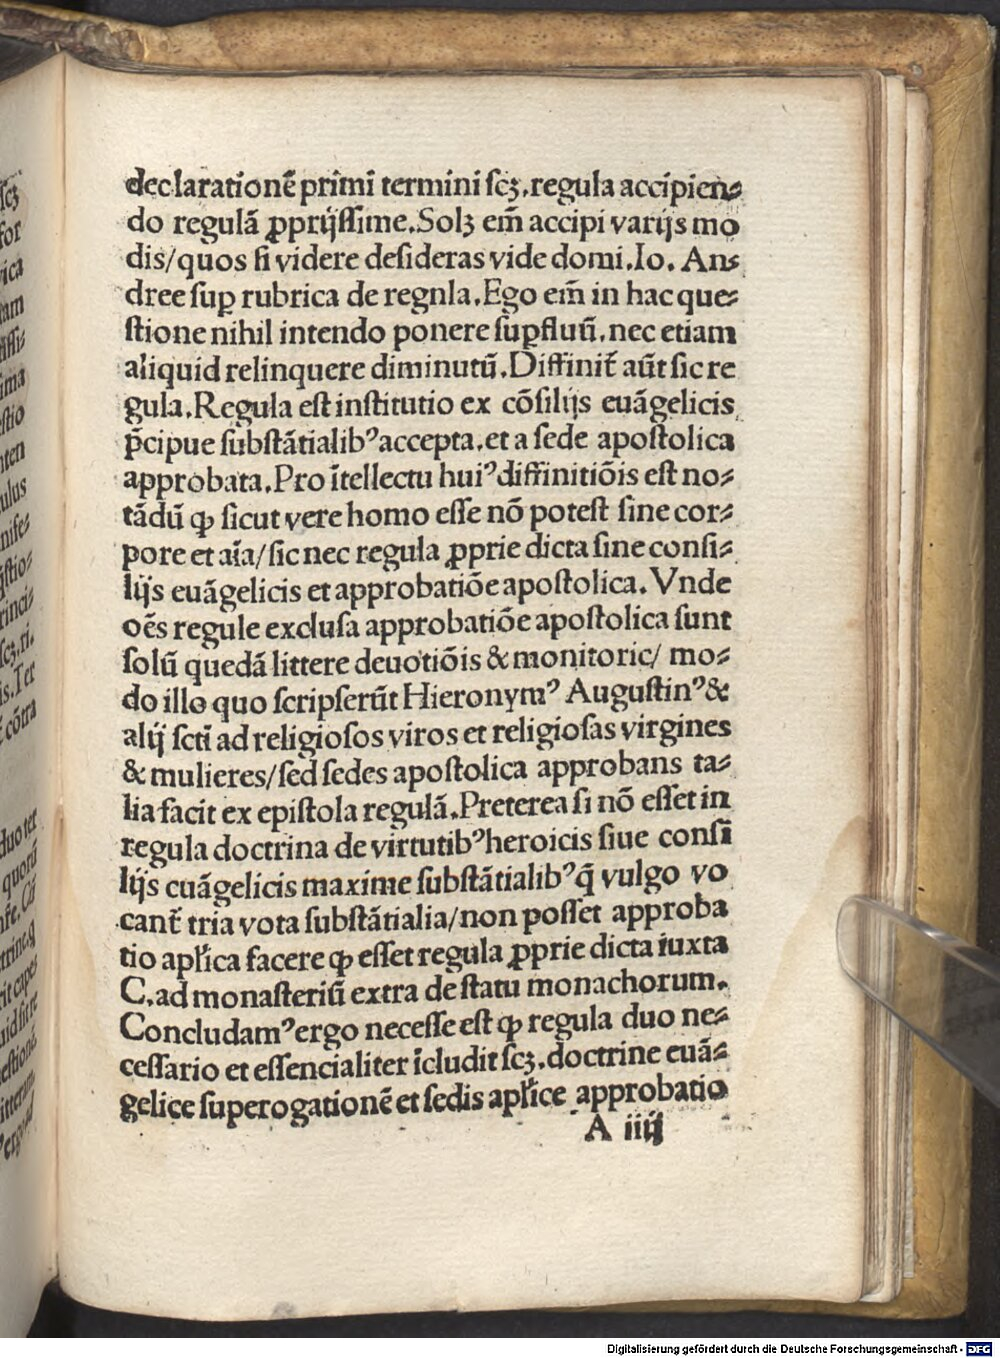 declarationẽ primĩ termini ſcꝫ.regula accipien⸗
do regulã ꝓprijſſime.Solꝫ em̃ accipi varijs mo
dis/quos ſi videre deſideras vide domi.Io. An⸗
dree ſuꝑ rubrica de regnla.Ego em̃ in hac que⸗
ſtione nihil intendo ponere ſuꝑfluũ.nec etiam
aliquid relinquere diminutũ.Diffinit̃ aũt sic re
gula.Regula eſt inſtitutio ex cõſilijs euãgelicis
p̃cipue ſubſtãtialibꝰ accepta.et a ſede apoſtolica
approbata.Pro ĩtellectu huiꝰ diffinitiõis eſt no⸗
tãdũ ꝙ ſicut vere homo eſſe nõ poteſt ſine cor⸗
pore et aĩa/ſic nec regula ꝓprie dicta ſine conſi⸗
lijs euãgelicis et approbatiõe apoſtolica. Vnde
oẽs regule excluſa approbatiõe apoſtolica ſunt
ſolũ quedã littere deuotiõis & monitoric/ mo⸗
do illo quo ſcripſerũt Hieronymꝰ Auguſtinꝰ &
alij ſcti ad religioſos viros et religioſas virgines
& mulieres/ſed ſedes apoſtolica approbans ta⸗
lia facit ex epiſtola regulã.Preterea ſi nõ eſſet in
regula doctrina de virtutibꝰ heroicis ſiue conſĩ
lijs euãgelicis maxime ſubſtãtialibꝰ q̃ vulgo vo
cant̃ tria vota ſubſtãtialia/non poſſet approba
tio apl̃ica facere ꝙ eſſet regula ꝓprie dicta iuxta
C.ad monaſteriũ extra de ſtatu monachorum.
Concludamꝰ ergo neceſſe eſt ꝙ regula duo ne⸗
ceſſario et eſſencialiter ĩcludit ſcꝫ.doctrine euã⸗
gelice ſuperogationẽ et ſedis apl̃ice approbatio
A iiij
Digitalisierung gefördert durch die Deutsche Forschungsgemeinschaft - DFG